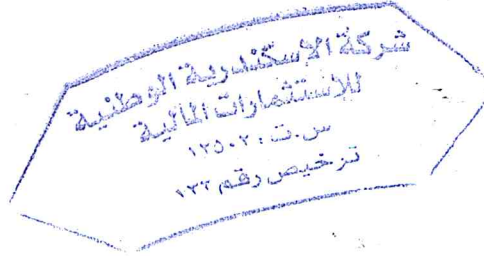 شركة الاسكندرية الوطنية
للاستثمارات المالية
س.ت: ١٢٥٠٢
ترخيص رقم ١٣٣